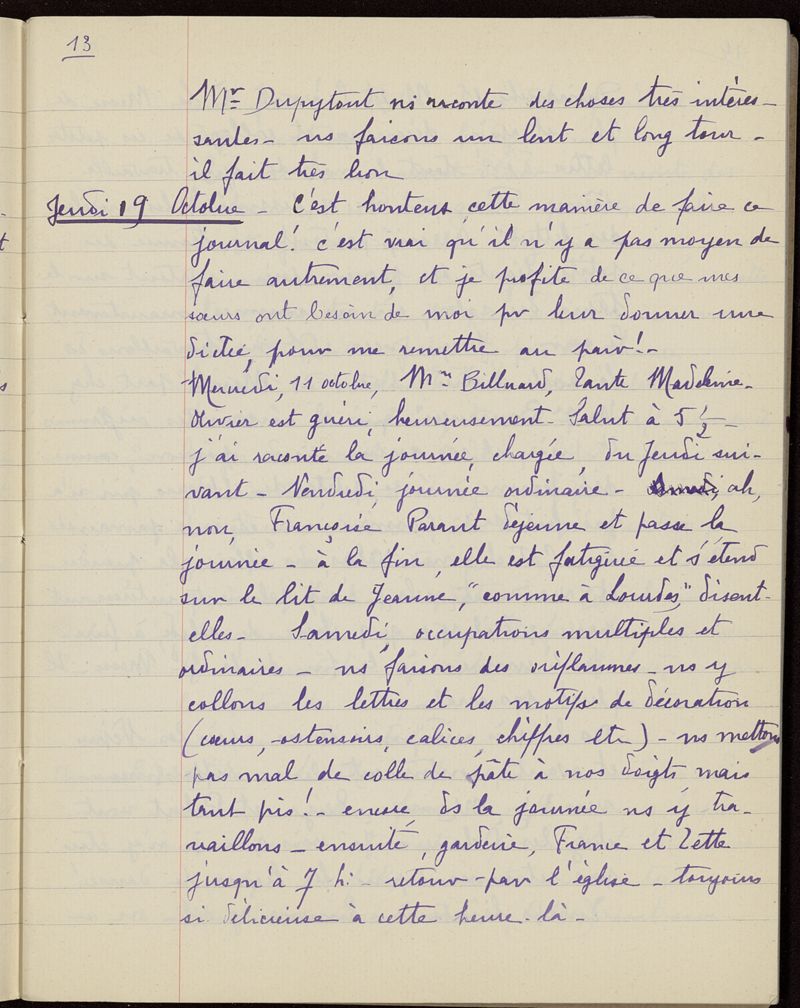 13
Mr Dupytout ns raconte des choses très intéres-
santes - ns faisons un lent et long tour -
il fait très bon
Jeudi 19 Octobre - C'est honteux cette manière de faire ce
journal! c'est vrai qu'il n'y a pas moyen de
faire autrement, et je profite de ce que mes
sœurs ont besoin de moi pr leur donner une
dictée, pour me remettre au pair! -
Mercredi, 11 octobre, Mme Billuard, Tante Madeleine -
Olivier est guéri, heureusement - Salut à 5 1/2 -
j'ai raconté la journée, chargée, du Jeudi sui-
vant - Vendredi, journée ordinaire - Samedi, ah,
non, Françoise Parant déjeune et passe la
journée - à la fin, elle est fatiguée et s'étend
sur le lit de Jeanne, "comme à Lourdes," disent-
elles - Samedi, occupations multiples et
ordinaires - ns faisons des oriflammes - ns y
collons les lettres et les motifs de décoration
(cœurs, ostensoirs, calices, chiffres etc) - ns mettons
pas mal de colle de pâte à nos doigts mais
tant pis! - encore ds la journée ns y tra-
vaillons - ensuite, garderie, France et Zette
jusqu'à 7 h. - retour par l'église - toujours
si délicieuse à cette heure-là -